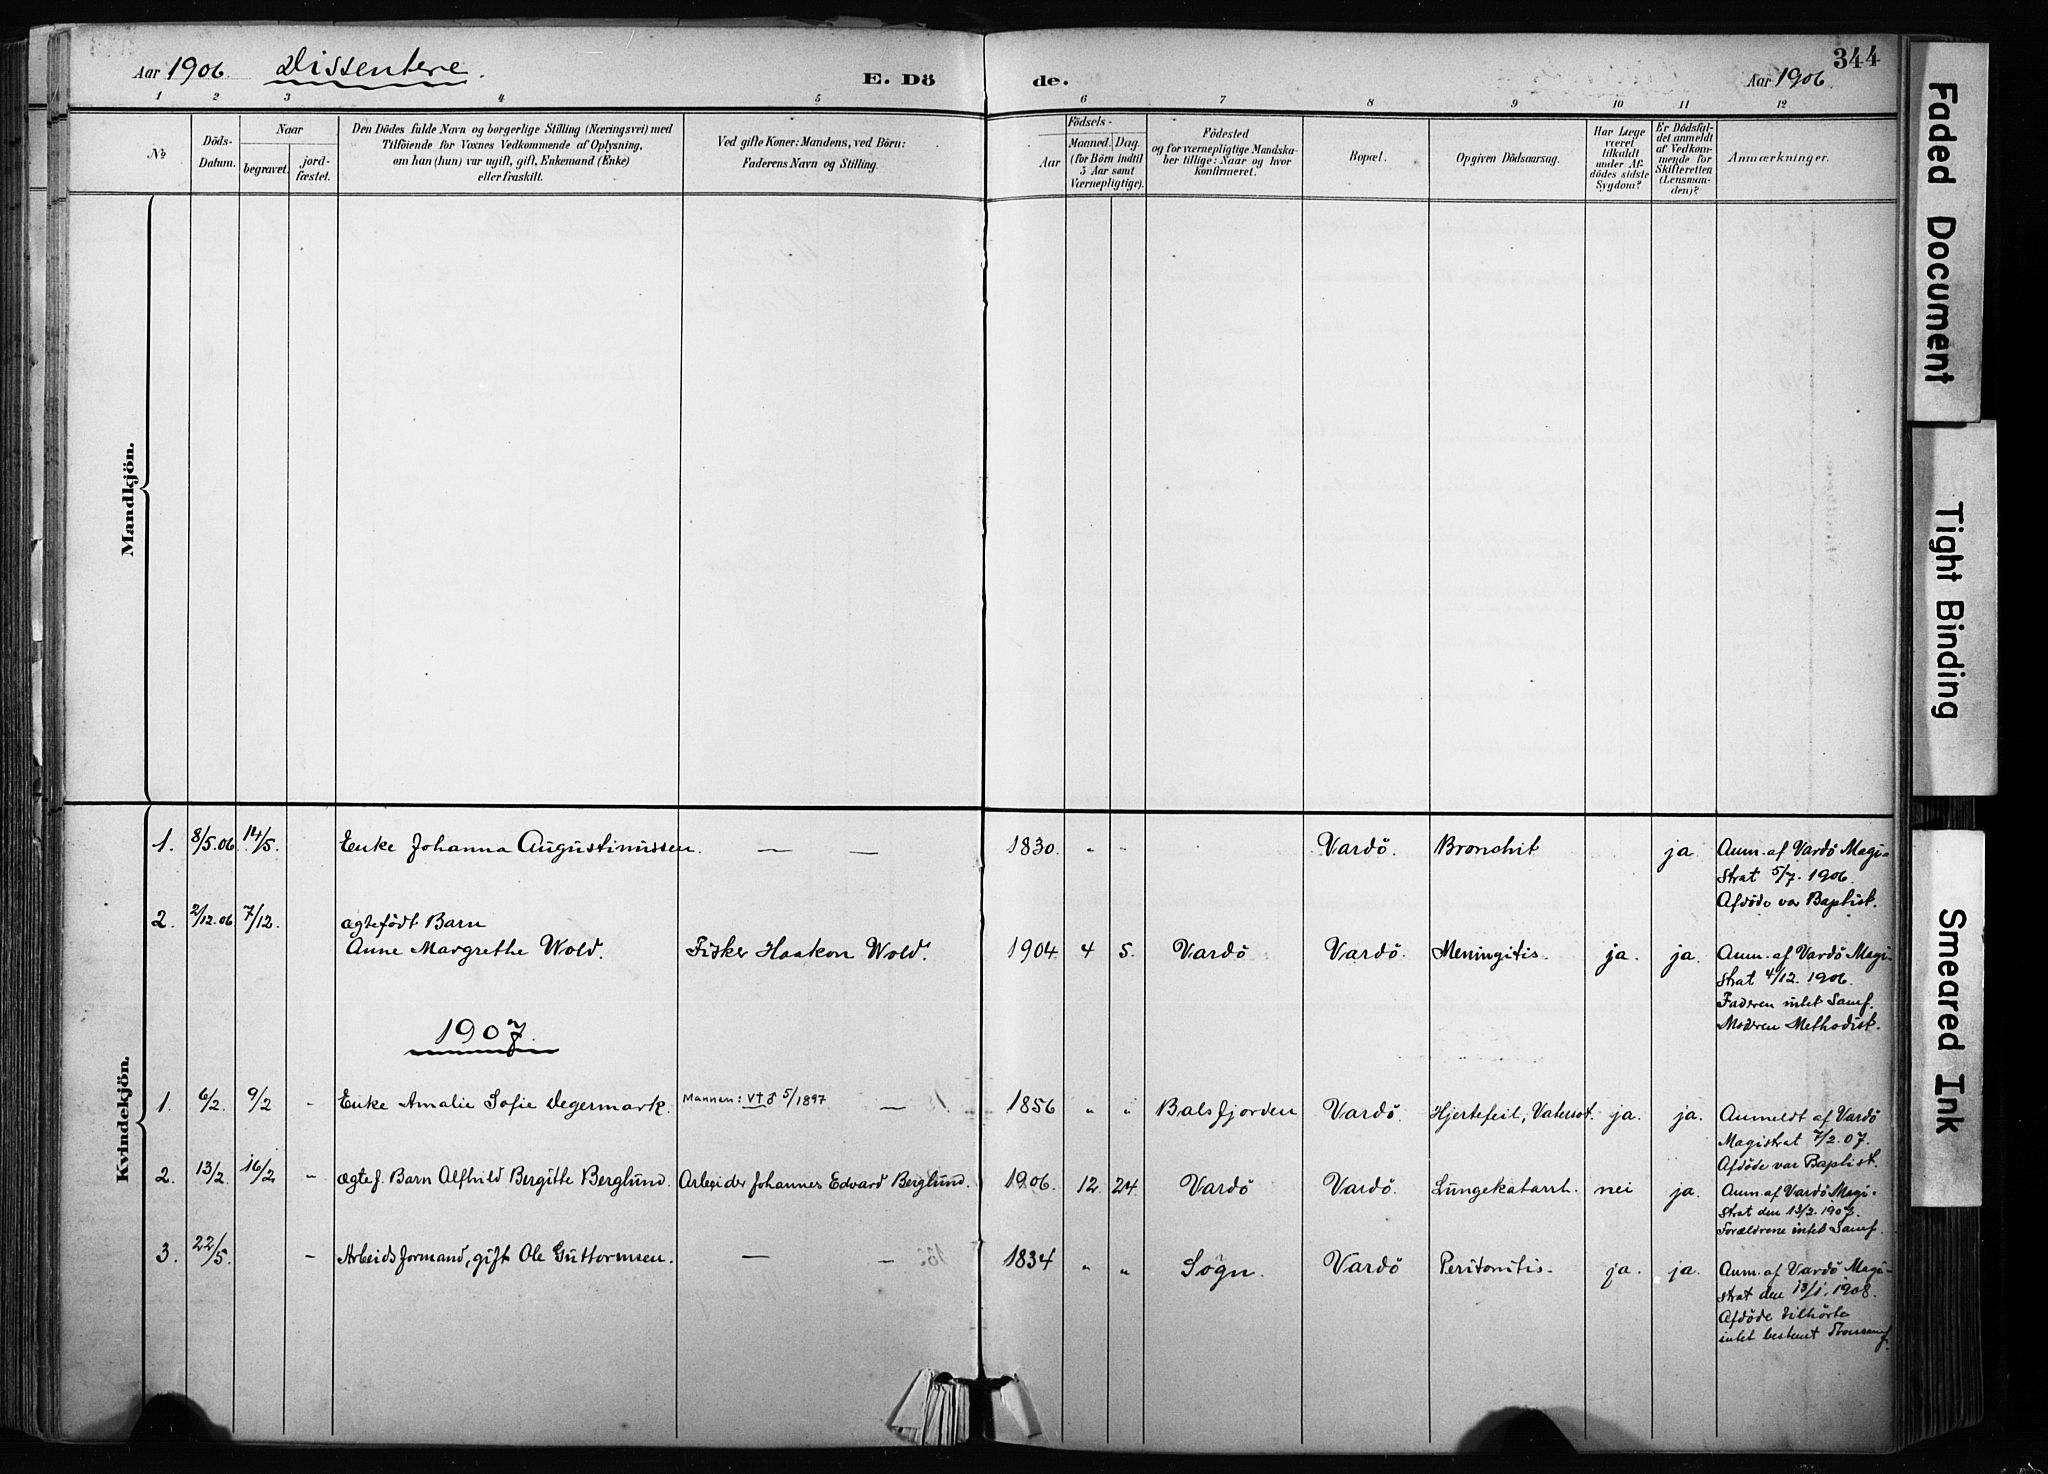 Aar 1906. Dissentere. E. Dö de. Aar 1906. 344
1 2 3 4 5 6 7 8 9 10 11 12
No
Döds-
Datum.
Naar
begravet.
jord-
fæstet.
Den Dödes fulde Navn og borgerlige Stilling (Næringsvei) med
Tilföiende for Voxnes Vedkommende af Oplysning,
om han (hun) var ugift, gift, Enkemand (Enke)
eller fraskilt.
Ved gifte Koner: Mandens, ved Börn:
Faderens Navn og Stilling.
Födsels-
Aar
Maaned.
Dag.
(for Börn indtil
5 Aar samt
Værnepligtige).
Födested
og for værnepligtige Mandska-
ber tillige: Naar og hvor
konfirmeret.
Bopæl.
Opgiven Dödsaarsag.
Har Læge
været
tilkaldt
under Af-
dödes sidste
Sygdom?
Er Dödsfal-
det anmeldt
af Vedkom-
mende for
Skifteretten
(Lensman-
den)?
Anmærkninger.
Mandkjön.
Kvindekjön.
1. 8/5.06 14/5. Enke Johanna Augustinussen. — — 1830. " " Vardö. Bronchit ja Anm. af Vardö Magi-
strat 5/7. 1906.
Afdöde var Baptist.
2. 2/12.06 7/12. ægtefödt Barn
Anne Margrethe Wold. Fisker Haakon Wold. 1904 4 5. Vardö Vardö. Meningitis. ja. ja. Anm. af Vardö Magi-
strat 4/12. 1906.
Faderen intet Samf.
Moderen Methodist.
1907.
1. 6/2. 9/2 - Enke Amalie Sofie Degermark. Mannen: V†ð 5/1897 — 1856 " " Balsfjorden Vardö. Hjertefeil, Vatersot. ja. ja. Anmeldt af Vardö
Magistrat 7/2.07.
Afdöde var Baptist.
2. 13/2. 16/2 - ægtef. Barn Alfhild Bergitte Berglund. Arbeider Johannes Edvard Berglund. 1906. 12. 24. Vardö Vardö. Lungekatarrh. nei ja. Anm. af Vardö Magi-
strat den 13/2. 1907.
Forældrene intet Samf.
3. 22/5. - Arbeidsformand, gift Ole Guttormsen. — - 1834 " " Sogn. Vardö Peritonitis. ja. ja. Anm. af Vardö Magi-
strat den 13/1. 1908.
Afdöde tilhörte
intet bestemt Trossamf.
Faded Document
Tight Binding
Smeared Ink